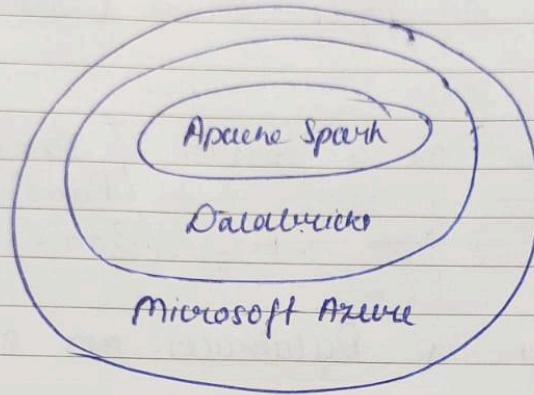 Apache Spark
Databricks
Microsoft Azure